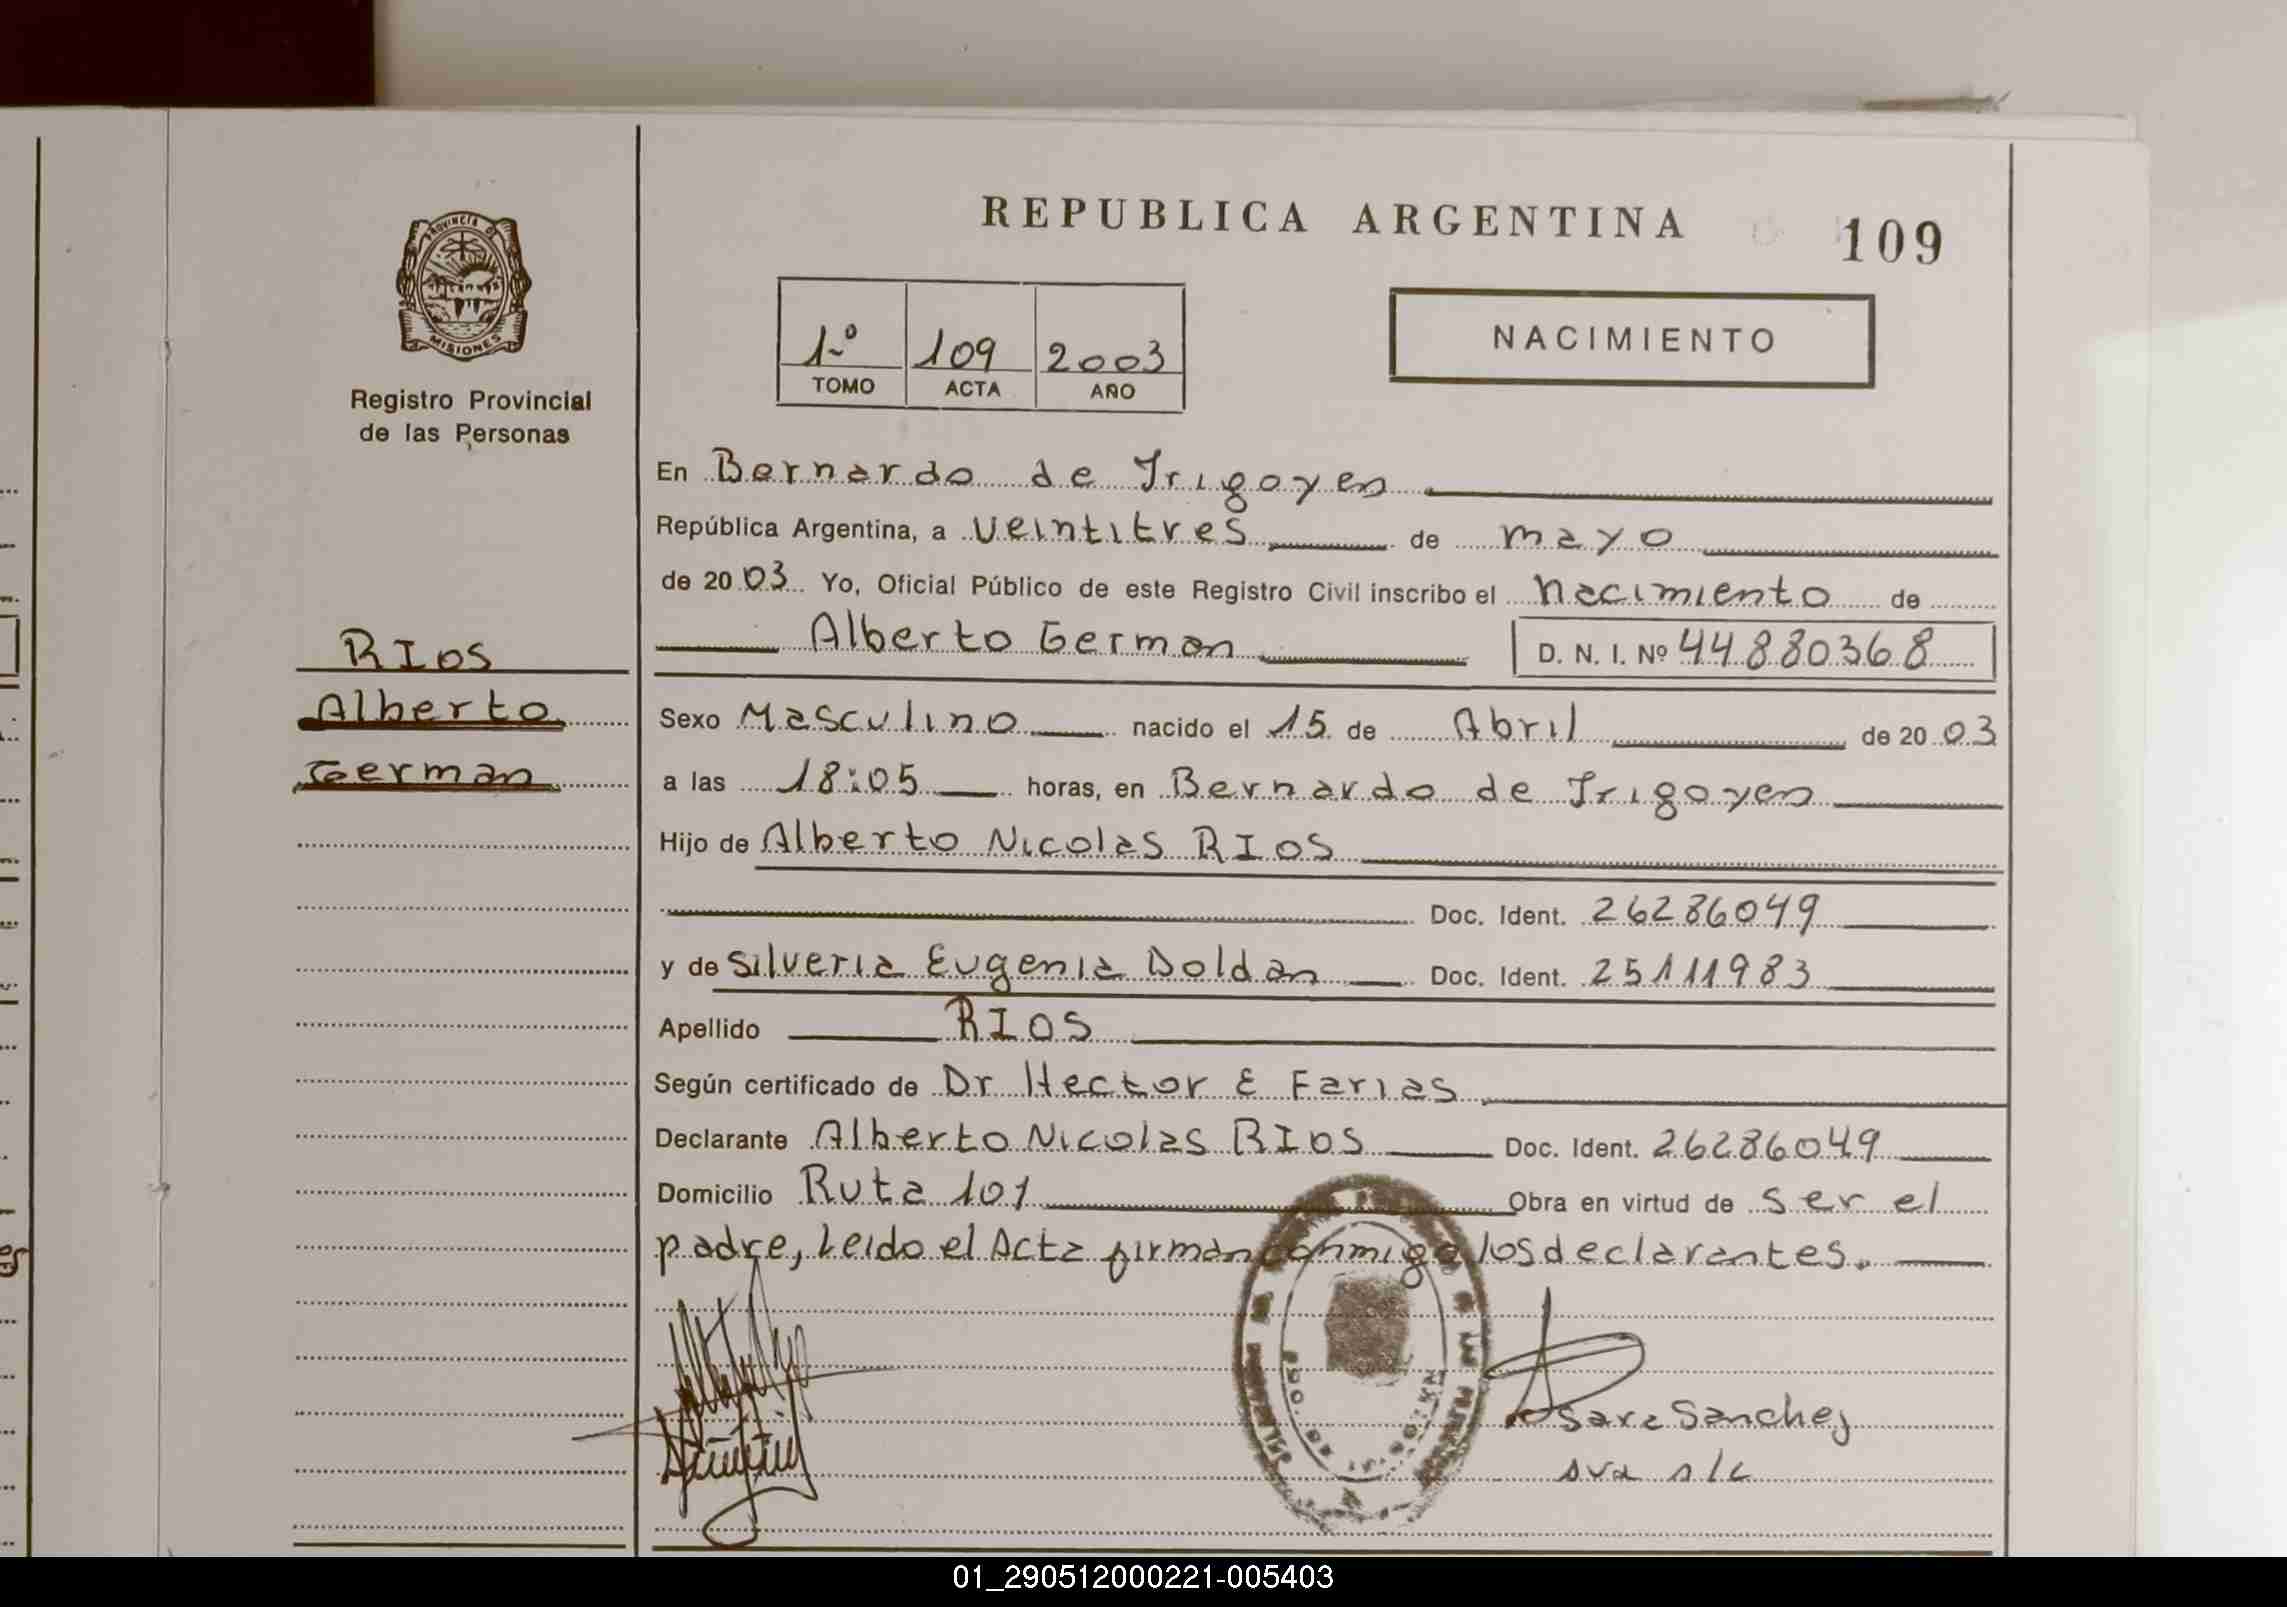 REPUBLICA ARGENTINA
109
PROVINCIA DE
MISIONES
Registro Provincial
de las Personas
1º 109 2003
TOMO ACTA AÑO
NACIMIENTO
En Bernardo de Irigoyen
República Argentina, a veintitres de mayo
de 2003 Yo, Oficial Público de este Registro Civil inscribo el nacimiento de
Alberto German D. N. I. Nº 44880368
RIOS
Alberto
German
Sexo Masculino nacido el 15 de Abril de 2003
a las 18:05 horas, en Bernardo de Irigoyen
Hijo de Alberto Nicolas RIOS
Doc. Ident. 26286049
y de Silveria Eugenia Doldan Doc. Ident. 25111983
Apellido RIOS
Según certificado de Dr Hector E Farias
Declarante Alberto Nicolas RIOS Doc. Ident. 26286049
Domicilio Ruta 101 Obra en virtud de ser el
padre, Leido el Acta firman conmigo los declarantes.
Sara Sanchez
01_290512000221-005403